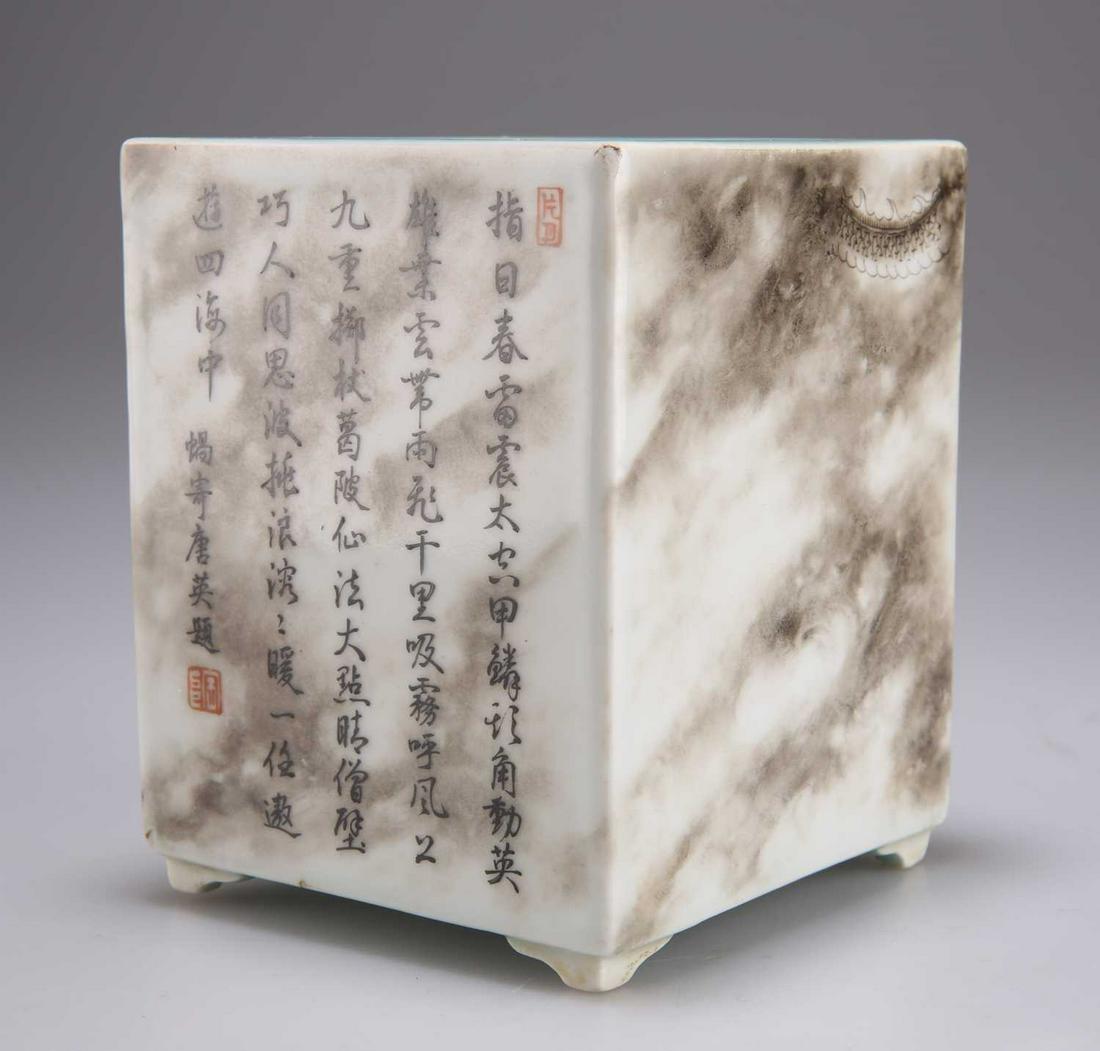 片月
指日春雷震太空甲鱗頭角動英
雄乘雲帶雨飛千里吸霧呼風上
九重擲杖葛陂仙法大點睛僧壁
巧人同恩波桃浪溶〻暖一任遨
遊四海中 蝸寄唐英題